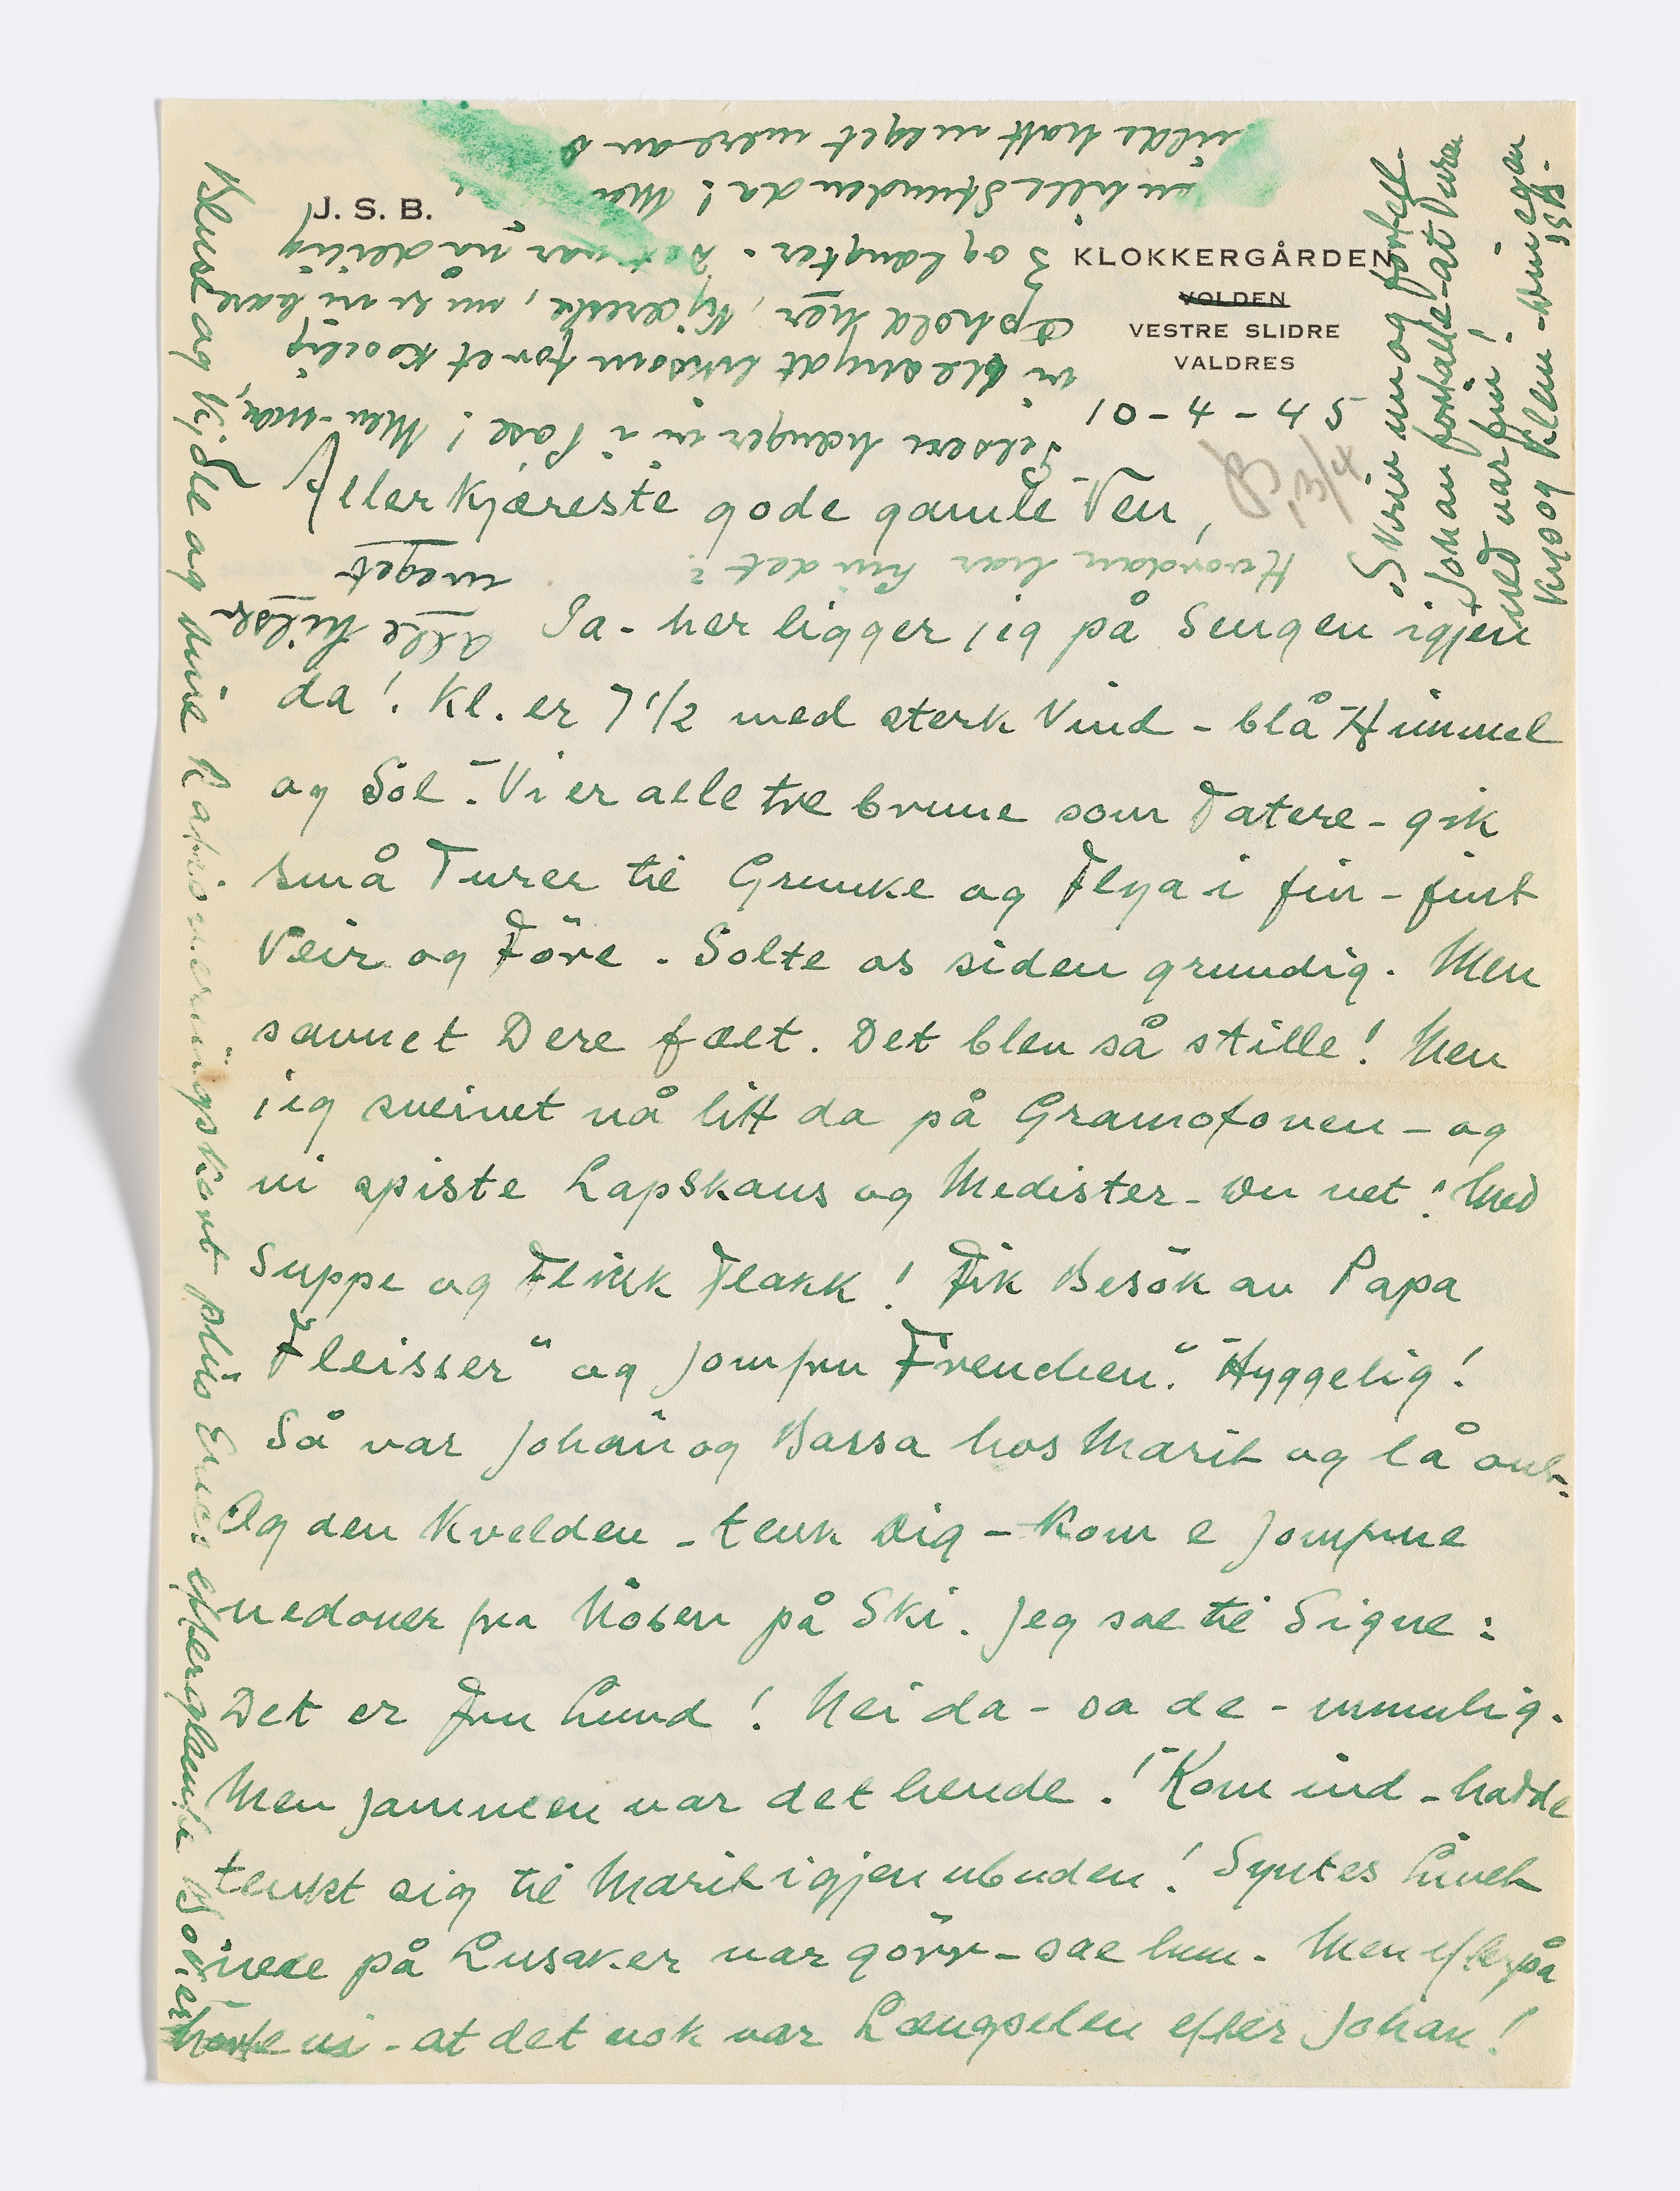 J. S. B.
KLOKKERGÅRDEN
VOLDEN
VESTRE SLIDRE
VALDRES
10-4-45
13/4
Allerkjæreste gode gamle Ven,
Ja - her ligger jeg på Sengen igjen
da! Kl. er 7 1/2 med sterk Vind - blå Himmel
og Sol. - Vi er alle tre brune som Tatere - gik
små Turer til Grunke og Flya i fin-fint
Veir og Före. Solte os siden grundig. Men
savnet Dere fælt. Det blev så stille! Men
jeg sveivet nå litt da på Gramofonen - og
vi spiste Lapskaus og Medister - Du vet! Med
Suppe og Flikk Flakk! Fik Besök av Papa
"Fleisser" og Jomfru "Freuchen". Hyggelig!
Så var Johan og Bassa hos Marit og lå
Og den Kvelden - tenk Dig - kom e Jomfrue
nedover fra Nösen på Ski. Jeg sae til Signe:
Det er Fru Lund! Nei da - sa de - umulig.
Men jammen var det hende! Kom ind - hadde
tenkt sig til Marit igjen ubuden! Syntes Livet
nede på Lysaker var görr - sae hun. Men efterpå
hørte vi - at det nok var Længselen efter Johan!
Hvordan har hun det?
alle hilser
meget
i Pose! Men - nå,
vi ble snydt liksom for et koselig
Ophold her, Kjæreste, nu er vi bare
3 og længter. Det var nå deilig
en lille Stunden da! Men
vilde hatt meget mere av
Skriv nu og fortell
Johan fortalte - at Turen
ned var fin!
Kyss og Klem - Din egen
Bluse og Kjole og mine Rationeringskort plus